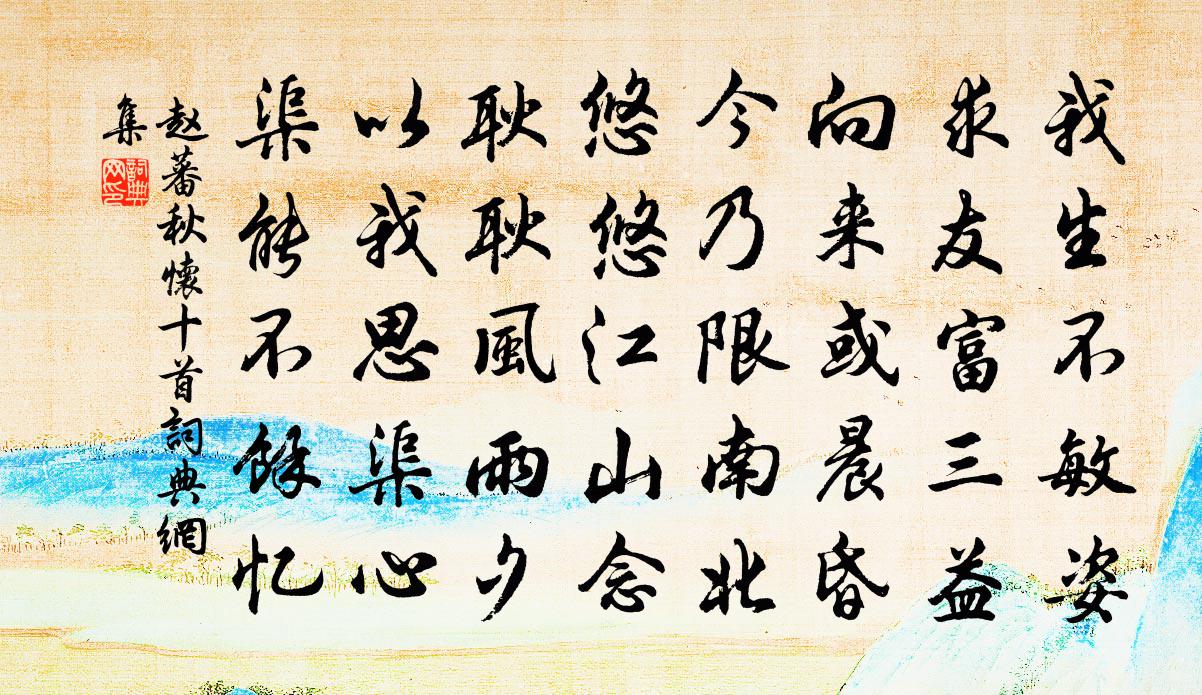 我生不敏姿
求友富三益
向来或晨昏
今乃限南北
悠悠江山念
耿耿風雨夕
以我思渠心
渠能不餘忆
赵蕃秋懷十首詞典網
集
詞典
网印